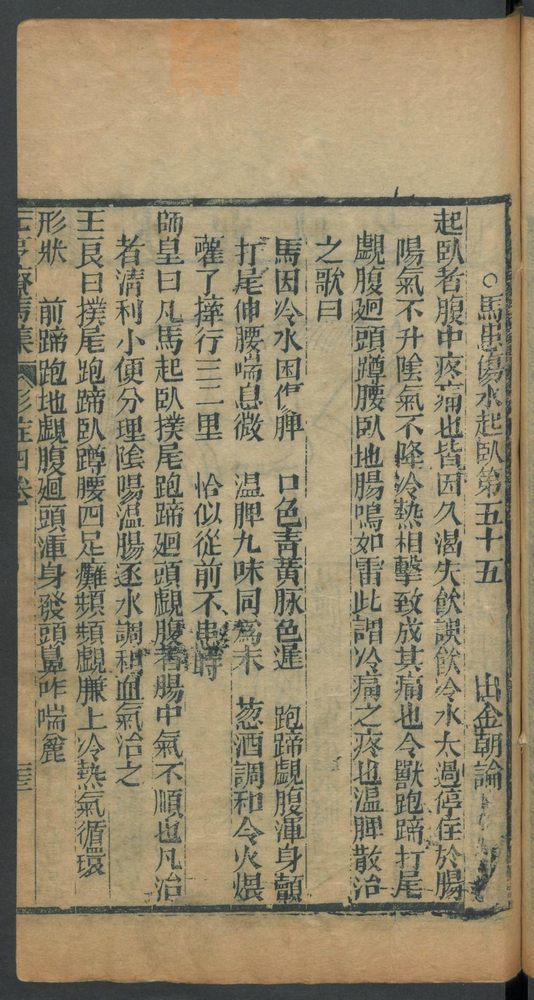 ○馬患傷水起臥第五十五　出金朝論
起臥者腹中疼痛也皆因久渴失飲誤飲冷水太過停在於腸
陽氣不升陰氣不降冷熱相擊致成其痛也令獸跑蹄打尾
覷腹廻頭蹲腰臥地腸鳴如雷此謂冷痛之疼也温脾散治
之歌曰
馬因冷水困傷脾　口色青黃脉色遲　跑蹄覷腹渾身顫
打尾伸腰喘息微　温脾九味同爲末　葱酒調和令火煨
嚾了攆行三二里　恰似從前不患時
師皇曰凡馬起臥擺尾跑蹄廻頭覷腹者腸中氣不順也凡治
者清利小便分理陰陽温腸逐水調和血氣治之
王良曰擺尾跑蹄臥蹲腰四足攤頻頻覷臁上冷熱氣循環
形狀　前蹄跑地覷腹廻頭渾身發頭鼻咋喘麄
元亨療馬集　形症四卷　三